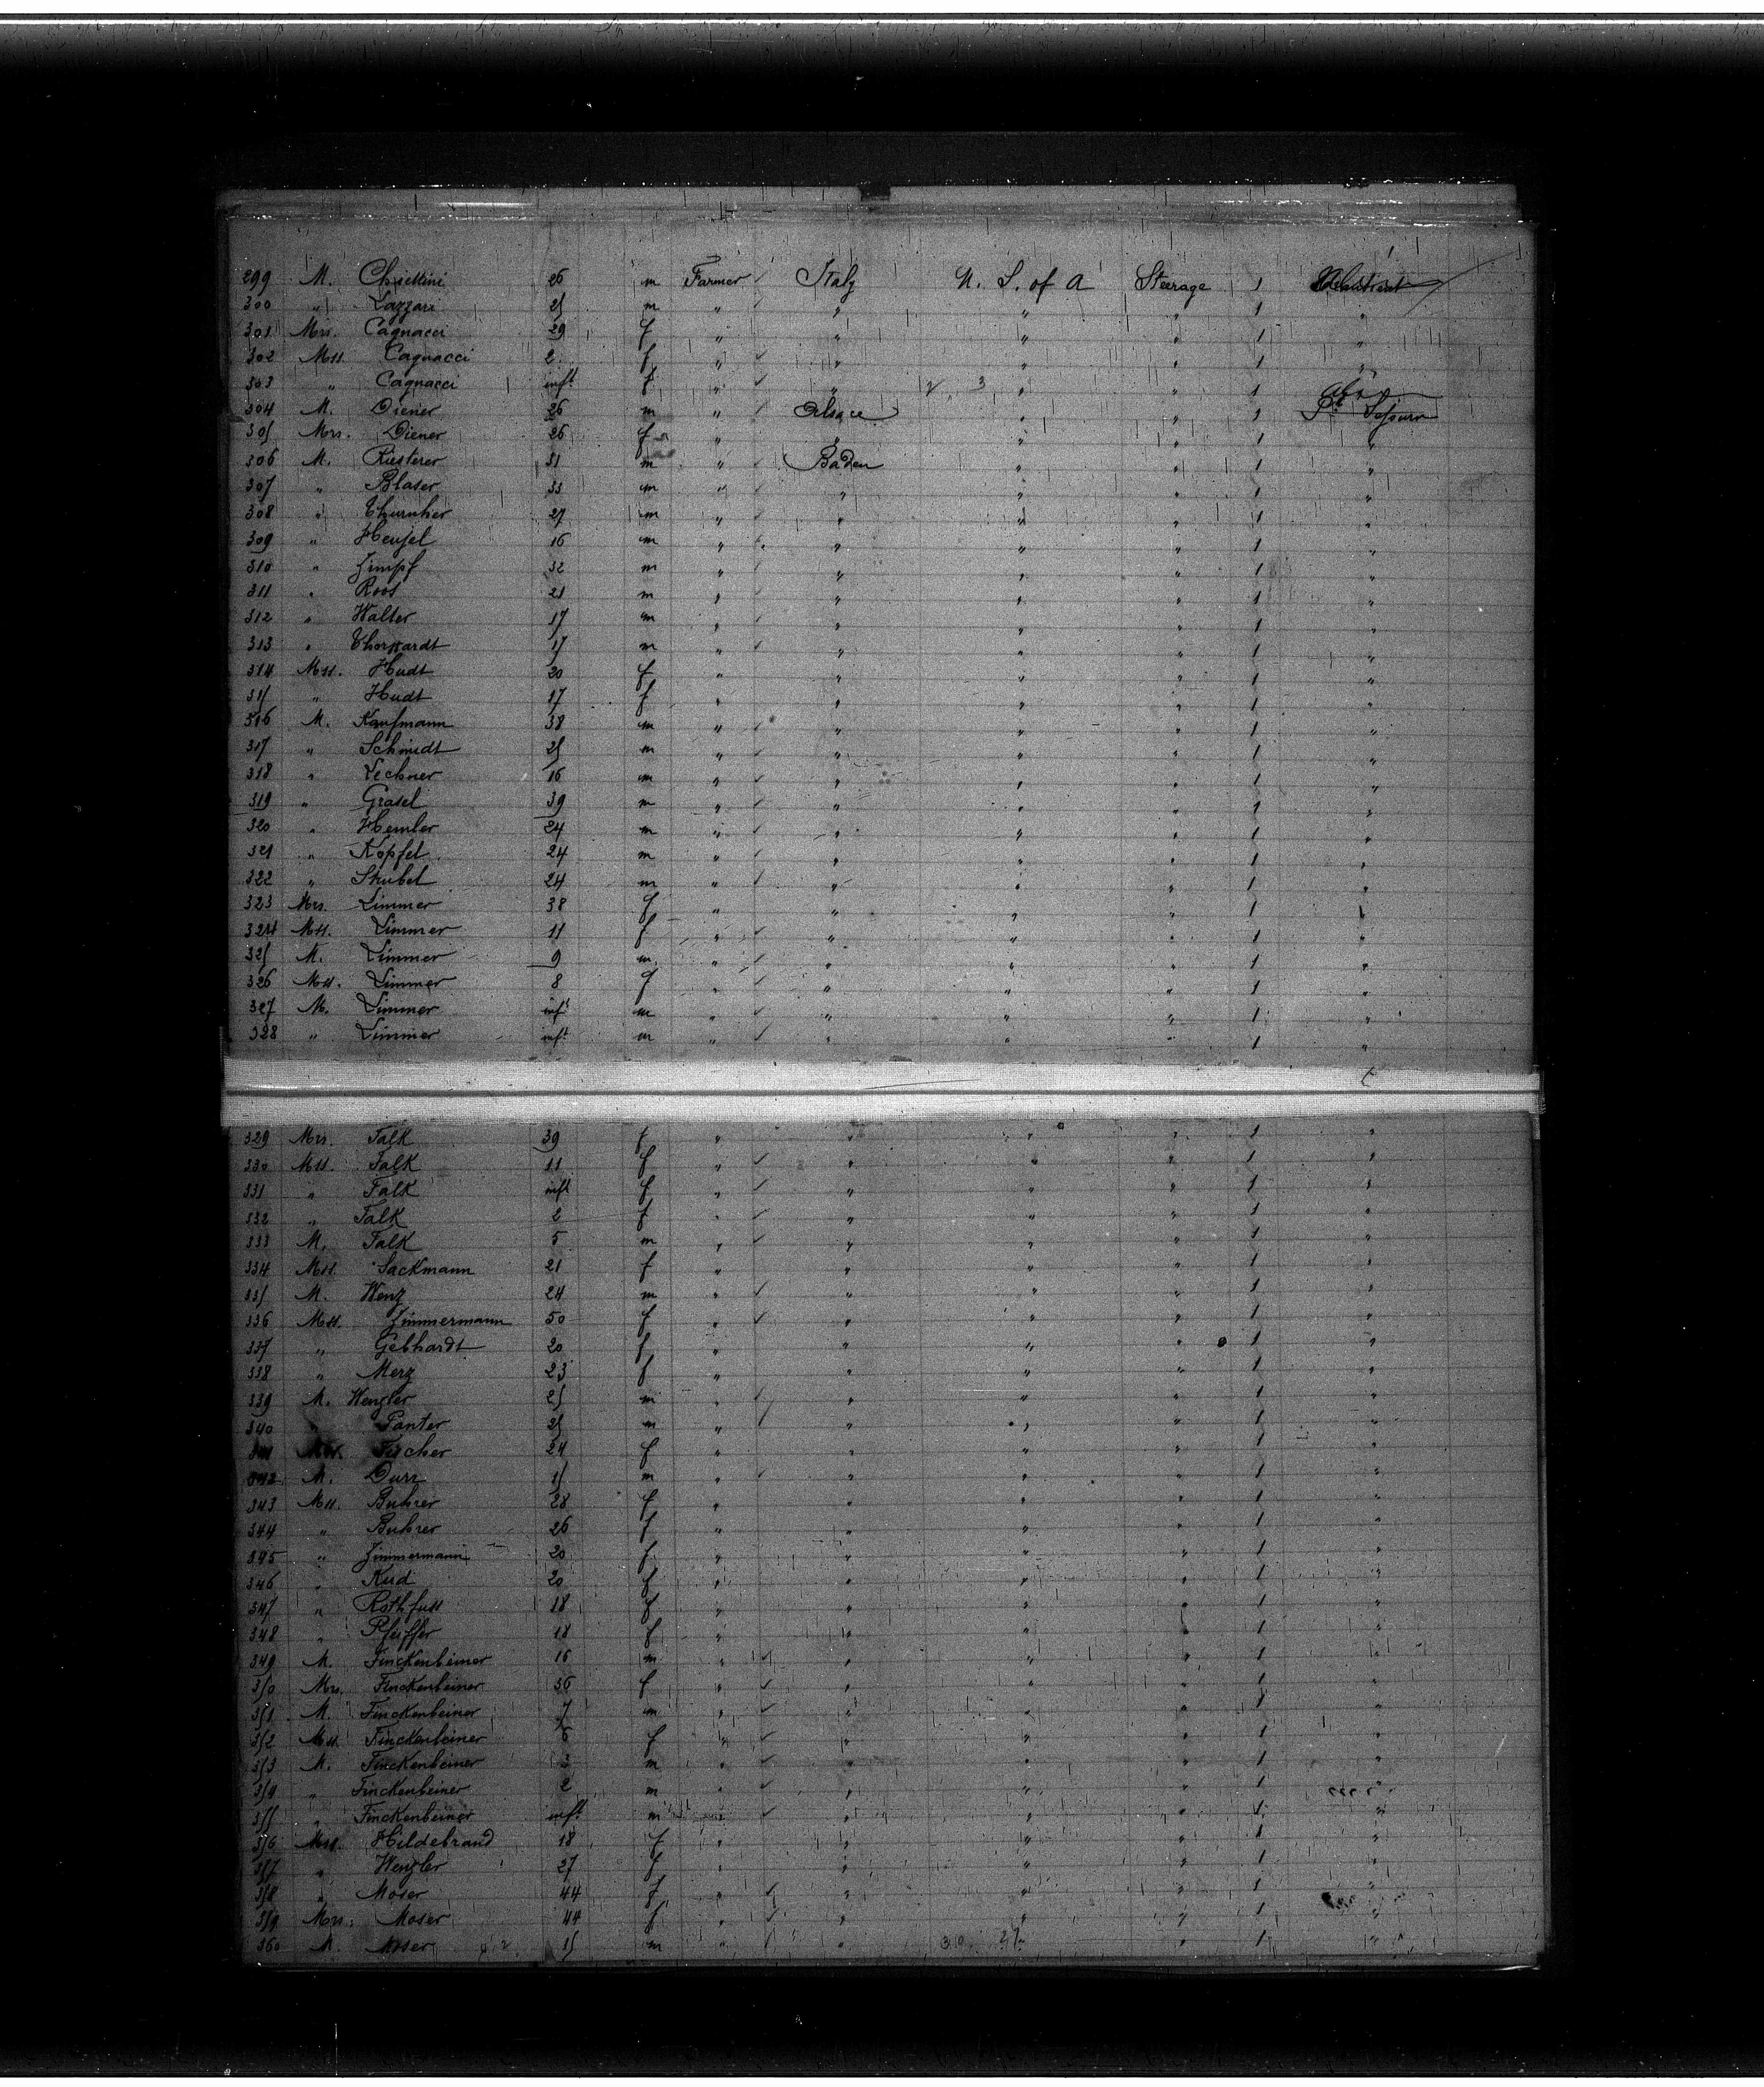 299 M. Chiettini 26 m Farmer Italy U. S. of A Steerage 1
300 " Lazzari 25 m " " " " 1 "
301 Mrs. Cagnacci 29 f " " " " 1 "
302 Mss. Cagnacci 2 f " " " " 1 "
303 " Cagnacci inft f " " 2 3 " " 1
304 M. Diener 26 m " Alsace " " 1 Pt Sojourn
305 Mrs. Diener 26 f " " " " 1 "
306 M. Riesterer 31 m " Baden " " 1 "
307 " Blaser 33 m " " " " 1 "
308 " Thurnher 27 m " " " " 1 "
309 " Hensel 16 m " " " " 1 "
310 " Zimpf 32 m " " " " 1 "
311 " Roos 21 m " " " " 1 "
312 " Walter 17 m " " " " 1 "
313 " m " " " " 1 "
314 Mss. Hudt 20 f " " " " 1 "
315 " Hudt 17 f " " " " 1 "
316 M. Kaufmann 38 m " " " " 1 "
317 " Schmidt 25 m " " " " 1 "
318 " Lechner 16 m " " " " 1 "
319 " Grasel 39 m " " " " 1 "
320 " Hember 24 m " " " " 1 "
321 " Kopfel 24 m " " " " 1 "
322 " Strubel 24 m " " " " 1 "
323 Mrs. Limmer 38 f " " " " 1 "
324 Mss. Limmer 11 f " " " " 1 "
325 M. Limmer 9 m " " " " 1 "
326 Mss. Limmer 8 f " " " " 1 "
327 M. Limmer inft m " " " " 1 "
328 " Limmer inft m " " " " 1 "
329 Mrs. Falk 39 f " " " " 1 "
330 Mss. Falk 11 f " " " " 1 "
331 " Falk inft f " " " " 1 "
332 " Falk 2 f " " " " 1 "
333 M. Falk 5 m " " " " 1 "
334 Mss. Sackmann 21 f " " " " 1 "
335 M. Wenz 24 m " " " " 1 "
336 Mss. Zimmermann 50 f " " " " 1 "
337 " Gebhardt 20 f " " " " 1 "
338 " Merz 23 f " " " " 1 "
339 M. Wenzler 25 m " " " " 1 "
340 " Panter 25 m " " " " 1 "
341 Fischer 24 f " " " " 1 "
342 M. Durr 15 m " " " " 1 "
343 Mss. Buhrer 28 f " " " 1 "
344 " Buhrer 26 f " " " " 1 "
345 " Zimmermann 20 f " " " " 1 "
346 " 20 f " " " " 1 "
347 " Rothfuss 18 f " " " " 1 "
348 " Pfeiffer 18 f " " " " 1 "
349 M. Finckenbeiner 16 m " " " " 1 "
350 Mrs. Finckenbeiner 36 f " " " " 1 "
351 M. Finckenbeiner 7 m " " " " 1 "
352 Mss. Finckenbeiner 6 f " " " " 1 "
353 M. Finckenbeiner 3 m " " " " 1 "
354 " Finckenbeiner 2 m " " " " 1 "
355 " Finckenbeiner inft m " " " " 1 "
356 Mss. Hildebrand 18 f " " " " 1 "
357 " Wenzler 27 f " " " " 1 "
358 " Moser 44 f " " " " 1 "
359 Mrs. Moser 44 f " " " " 1 "
360 M. Moser 15 m " " 30 27 " 1 "